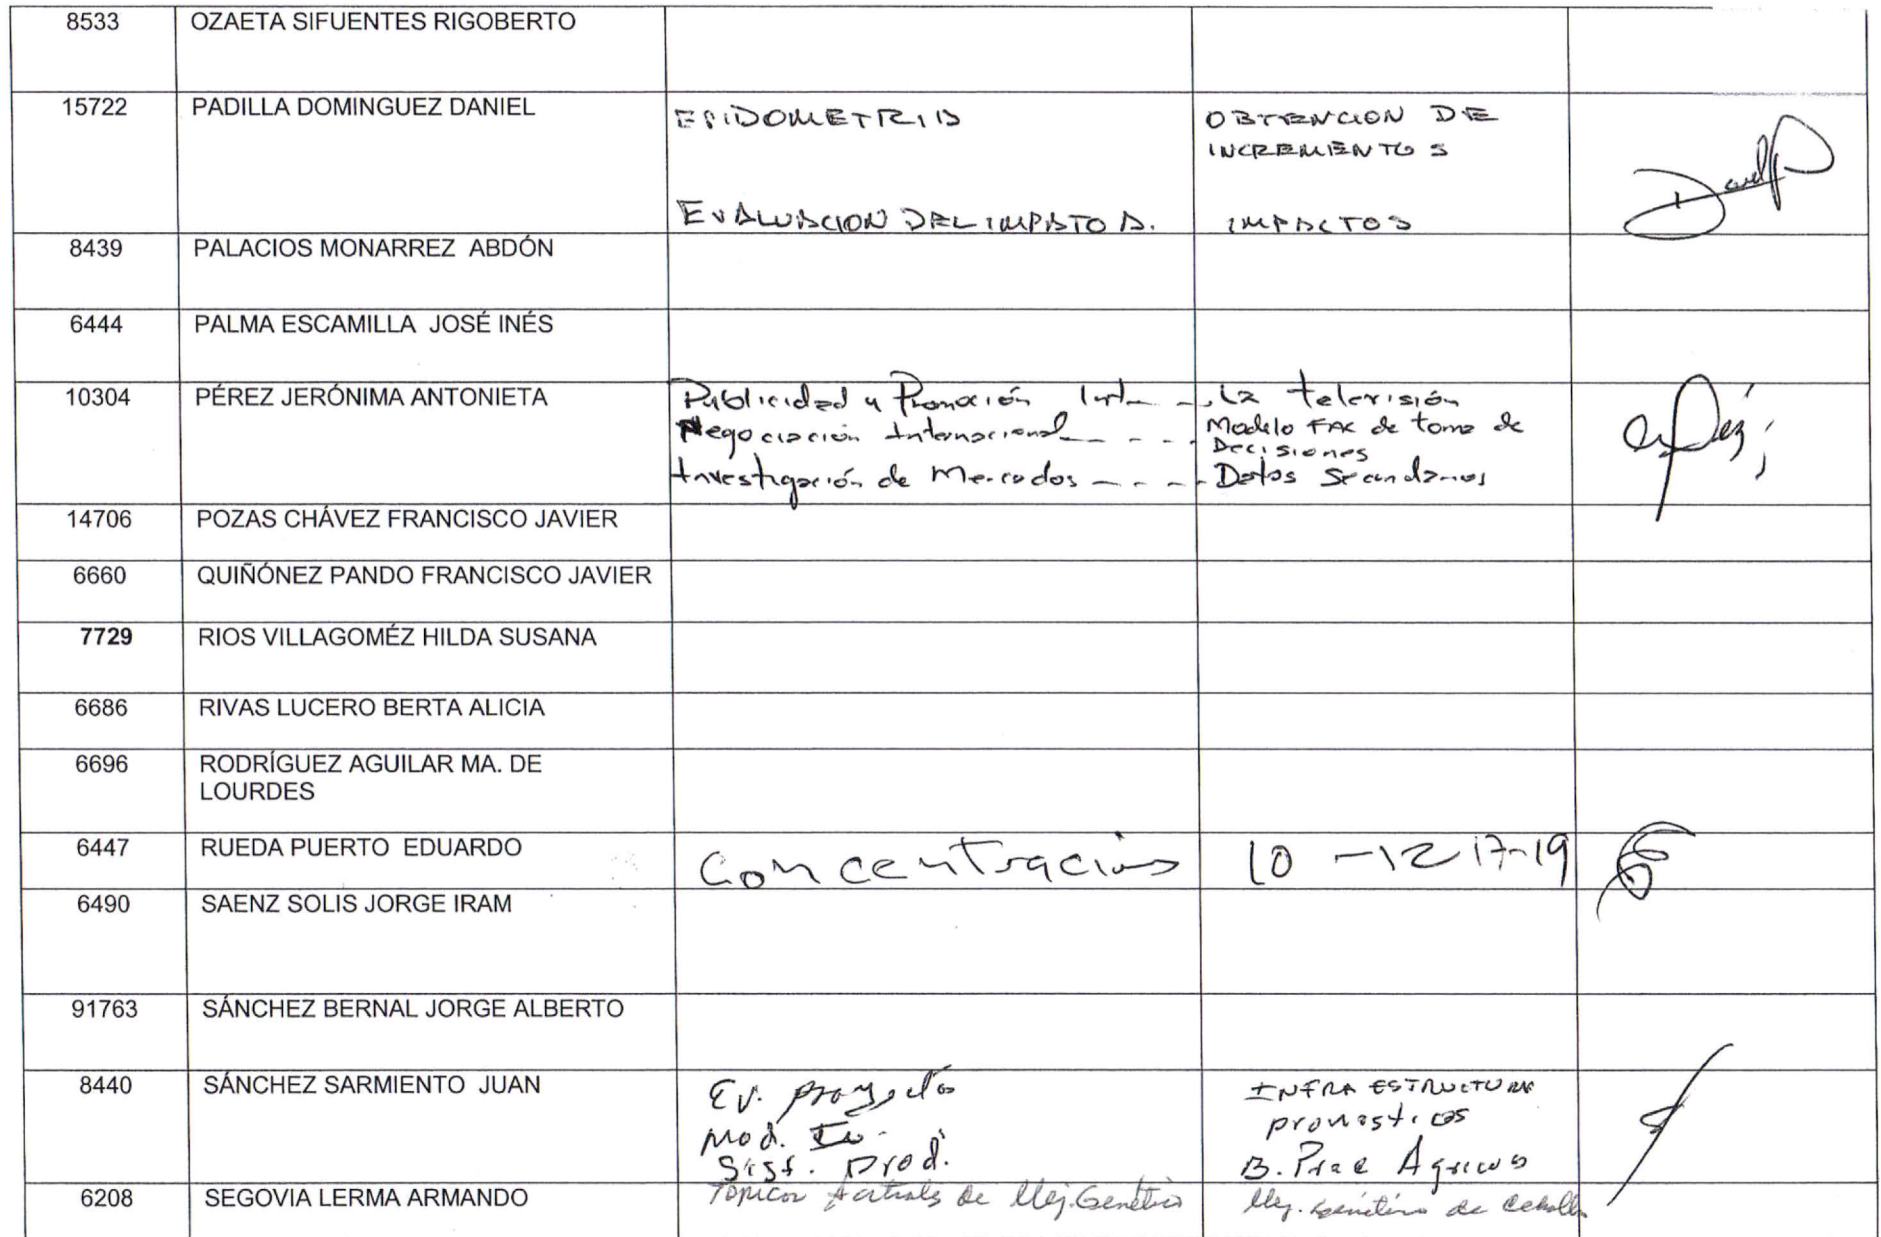 8533 OZAETA SIFUENTES RIGOBERTO
15722 PADILLA DOMINGUEZ DANIEL EPIDOMETRIA OBTENCION DE
INCREMENTOS
EVALUACION DEL IMPATO A. IMPACTOS
8439 PALACIOS MONARREZ ABDÓN
6444 PALMA ESCAMILLA JOSÉ INÉS
10304 PÉREZ JERÓNIMA ANTONIETA Publicidad y Promoción Int - - La televisión
Negociación Internacional - - - - Modelo FAC de toma de
Decisiones
Investigación de Mercados - - - - Datos Secundarios
14706 POZAS CHÁVEZ FRANCISCO JAVIER
6660 QUIÑÓNEZ PANDO FRANCISCO JAVIER
7729 RIOS VILLAGOMÉZ HILDA SUSANA
6686 RIVAS LUCERO BERTA ALICIA
6696 RODRÍGUEZ AGUILAR MA. DE
LOURDES
6447 RUEDA PUERTO EDUARDO Concentración 10 -12 17-19
6490 SAENZ SOLIS JORGE IRAM
91763 SÁNCHEZ BERNAL JORGE ALBERTO
8440 SÁNCHEZ SARMIENTO JUAN Ev. proyectos INFRAESTRUCTURA
Mod. pronosticos
Sist. Prod. B. Prac Agricos
6208 SEGOVIA LERMA ARMANDO Topicos Actuales de Mej. Genética Mej. Genético de Cebolla